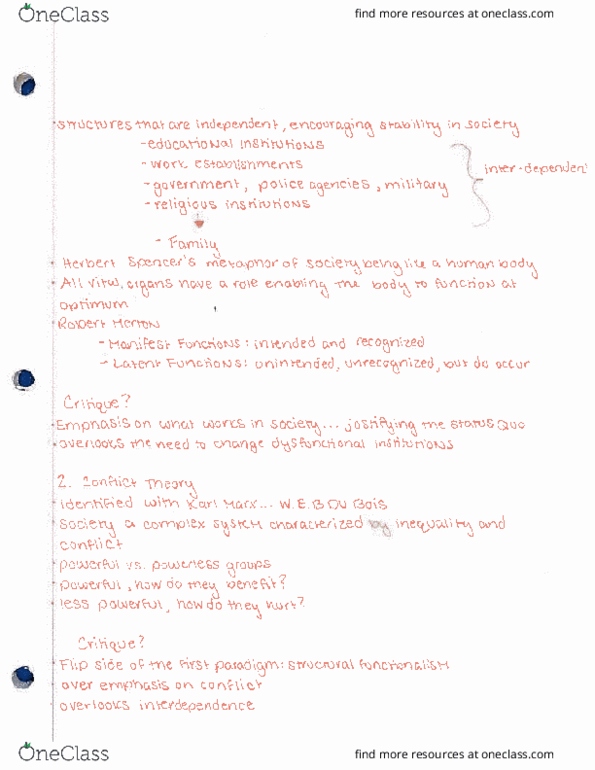 OneClass
find more resources at oneclass.com
structures that are independent, encouraging stability in society
- educational institutions
- work establishments
- government, police agencies, military
- religious institutions
inter-dependent
- Family
Herbert Spencer's metaphor of society being like a human body
All vital organs have a role enabling the body to function at
optimum
Robert Merton
- Manifest Functions: intended and recognized
- Latent Functions: unintended, unrecognized, but do occur
Critique?
Emphasis on what works in society... justifying the status Quo
overlooks the need to change dysfunctional institutions
2. Conflict Theory
identified with Karl Marx... W.E.B DU Bois
Society a complex system characterized by inequality and
conflict
powerful vs. powerless groups
powerful, how do they benefit?
less powerful, how do they hurt?
Critique?
Flip side of the first paradigm: structural functionalism
over emphasis on conflict
overlooks interdependence
OneClass
find more resources at oneclass.com